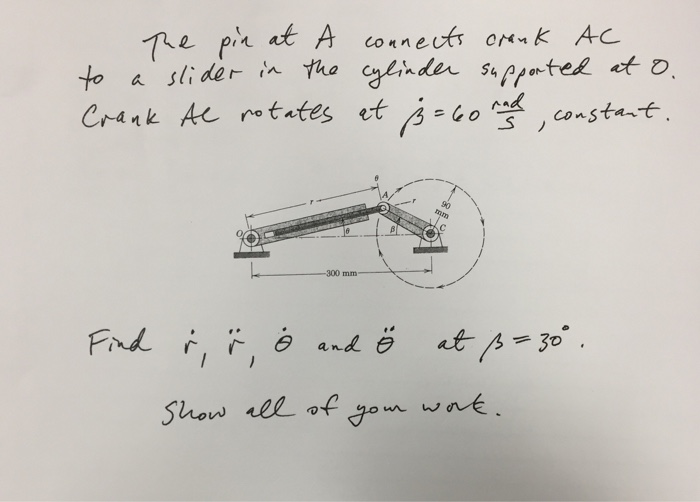 The pin at A connects crank AC
to a slider in the cylinder supported at O.
Crank AC rotates at β̇ = 60 rad/s, constant.
θ
r
A
r
90
mm
O
θ
β
C
300 mm
Find ṙ, r̈, θ̇ and θ̈ at β = 30°.
Show all of your work.